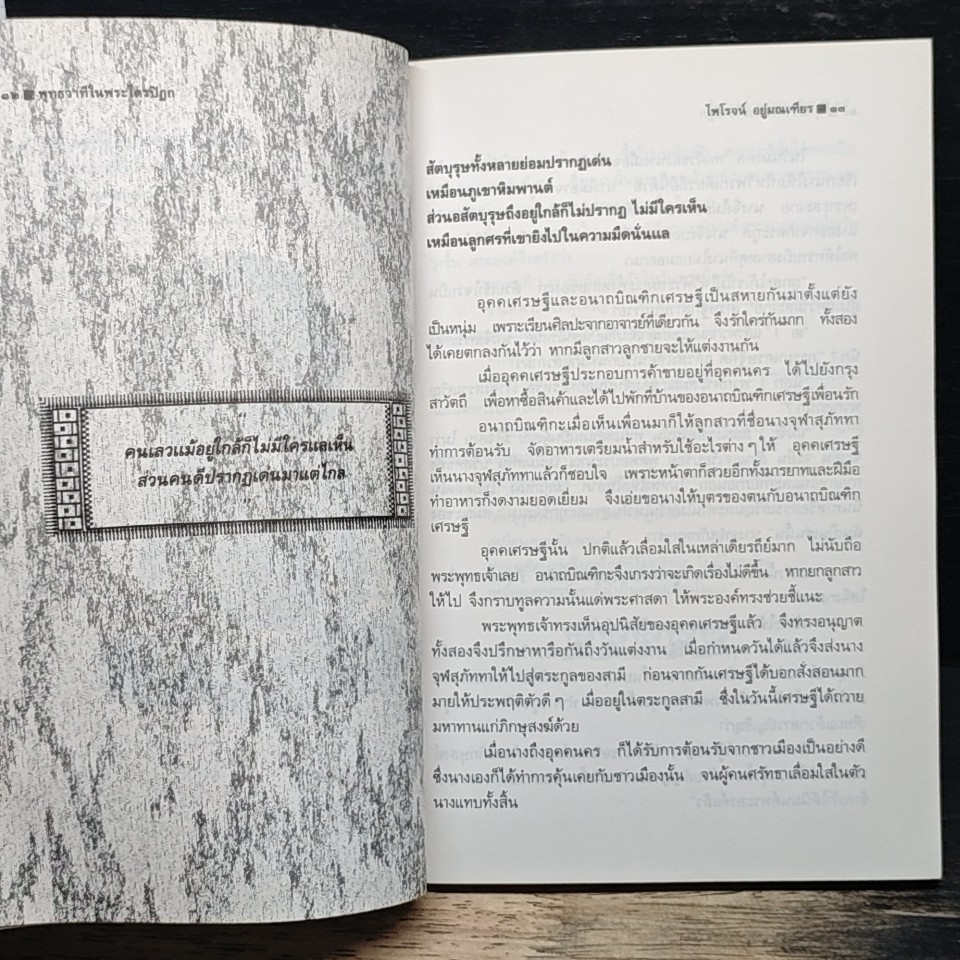 ๑๒ ■ พุทธวาทีในพระไตรปิฎก
"
คนเลวแม้อยู่ใกล้ก็ไม่มีใครแลเห็น
ส่วนคนดีปรากฏเด่นมาแต่ไกล
"
ไพโรจน์ อยู่มณเฑียร ■ ๑๓
สัตบุรุษทั้งหลายย่อมปรากฏเด่น
เหมือนภูเขาหิมพานต์
ส่วนอสัตบุรุษถึงอยู่ใกล้ก็ไม่ปรากฏ ไม่มีใครเห็น
เหมือนลูกศรที่เขายิงไปในความมืดนั่นแล
อุคคเศรษฐีและอนาถบิณฑิกเศรษฐีเป็นสหายกันมาตั้งแต่ยัง
เป็นหนุ่ม เพราะเรียนศิลปะจากอาจารย์ที่เดียวกัน จึงรักใคร่กันมาก ทั้งสอง
ได้เคยตกลงกันไว้ว่า หากมีลูกสาวลูกชายจะให้แต่งงานกัน
เมื่ออุคคเศรษฐีประกอบการค้าขายอยู่ที่อุคคนคร ได้ไปยังกรุง
สาวัตถี เพื่อหาซื้อสินค้าและได้ไปพักที่บ้านของอนาถบิณฑิกเศรษฐีเพื่อนรัก
อนาถบิณฑิกะเมื่อเห็นเพื่อนมาก็ให้ลูกสาวที่ชื่อนางจุฬาสุภัททา
ทำการต้อนรับ จัดอาหารเตรียมน้ำสำหรับใช้อะไรต่างๆ ให้ อุคคเศรษฐี
เห็นนางจุฬสุภัททาแล้วก็ชอบใจ เพราะหน้าตาก็สวยอีกทั้งมารยาทและฝีมือ
ทำอาหารก็งดงามยอดเยี่ยม จึงเอ่ยขอนางให้บุตรของตนกับอนาถบิณฑิก
เศรษฐี
อุคคเศรษฐีนั้น ปกติแล้วเลื่อมใสในเหล่าเดียรถีย์มาก ไม่นับถือ
พระพุทธเจ้าเลย อนาถบิณฑิกะจึงเกรงว่าจะเกิดเรื่องไม่ดีขึ้น หากยกลูกสาว
ให้ไป จึงกราบทูลความนั้นแด่พระศาสดา ให้พระองค์ทรงช่วยชี้แนะ
พระพุทธเจ้าทรงเห็นอุปนิสัยของอุคคเศรษฐีแล้ว จึงทรงอนุญาต
ทั้งสองจึงปรึกษาหารือกันถึงวันแต่งงาน เมื่อกำหนดวันได้แล้วจึงส่งนาง
จุฬสุภัททาให้ไปสู่ตระกูลของสามี ก่อนจากกันเศรษฐีได้บอกสั่งสอนมาก
มายให้ประพฤติตัวดีๆ เมื่ออยู่ในตระกูลสามี ซึ่งในวันนี้เศรษฐีได้ถวาย
มหาทานแก่ภิกษุสงฆ์ด้วย
เมื่อนางถึงอุคคนคร ก็ได้รับการต้อนรับจากชาวเมืองเป็นอย่างดี
ซึ่งนางเองก็ได้ทำการคุ้นเคยกับชาวเมืองนั้น จนผู้คนศรัทธาเลื่อมใสในตัว
นางแทบทั้งสิ้น